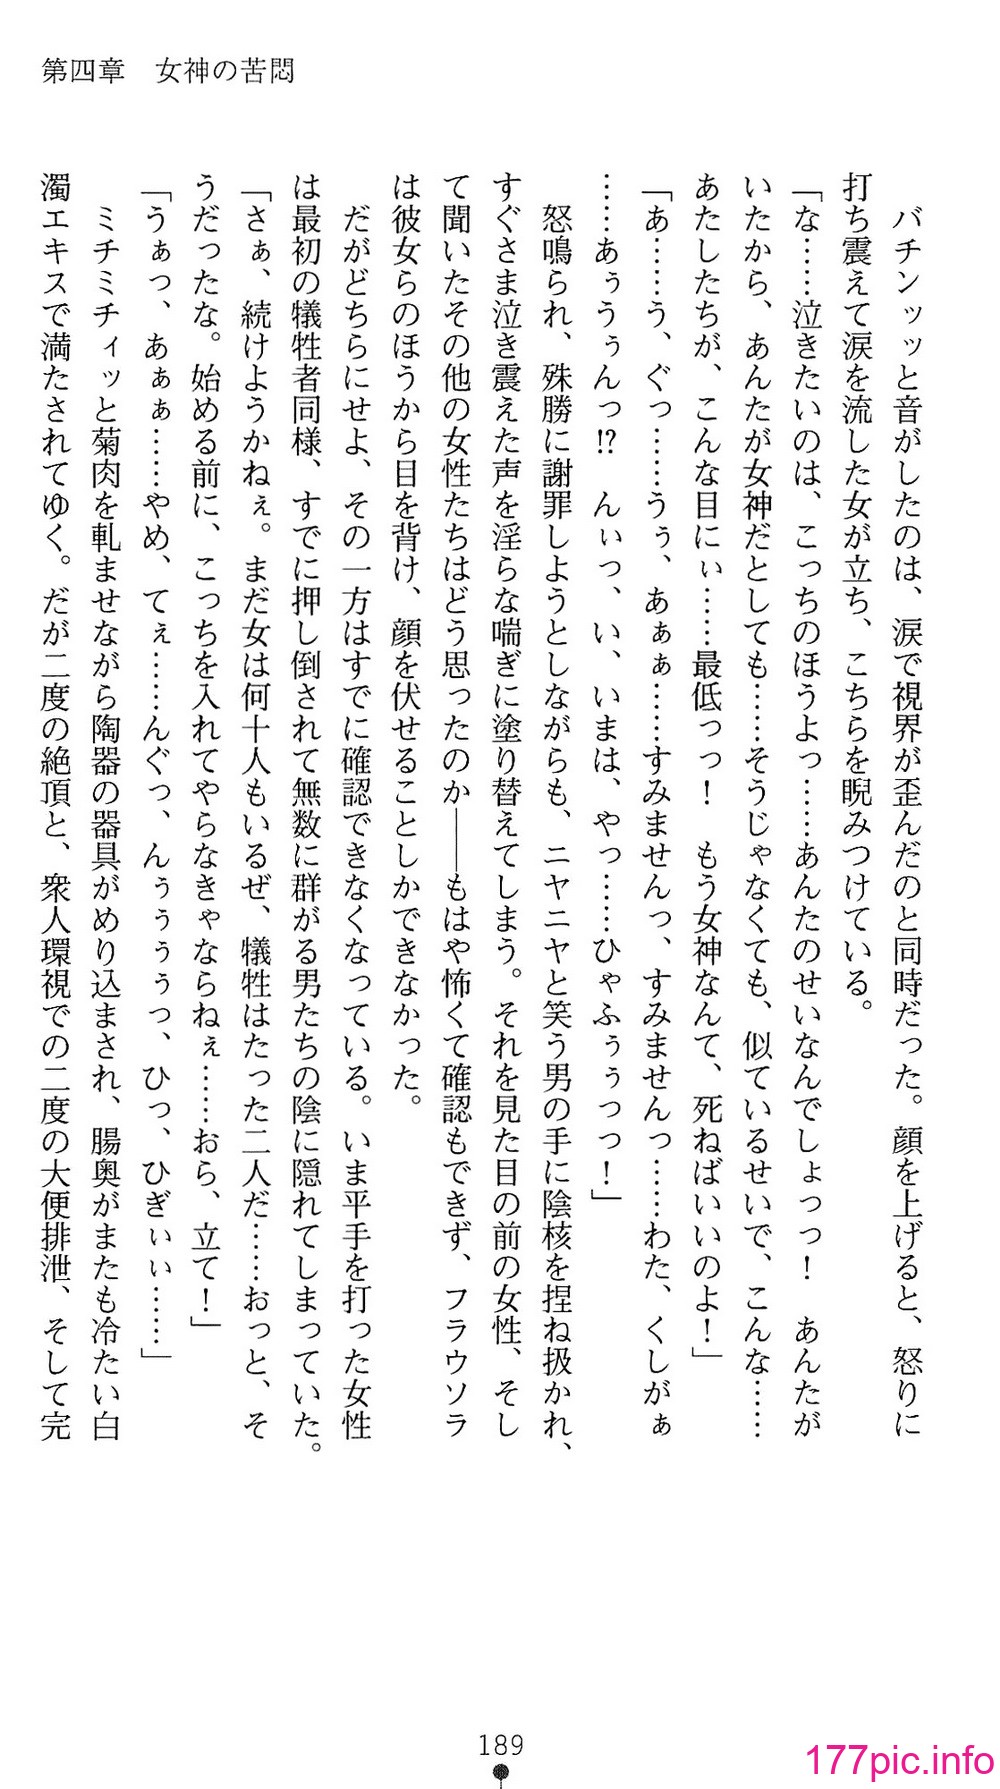 第四章　女神の苦悶
　バチンッッと音がしたのは、涙で視界が歪んだのと同時だった。顔を上げると、怒りに
打ち震えて涙を流した女が立ち、こちらを睨みつけている。
「な……泣きたいのは、こっちのほうよっ……あんたのせいなんでしょっっ！　あんたが
いたから、あんたが女神だとしても……そうじゃなくても、似ているせいで、こんな……
あたしたちが、こんな目にぃ……最低っっ！　もう女神なんて、死ねばいいのよ！」
「あ……う、ぐっ……うぅ、あぁぁ……すみませんっ、すみませんっ……わた、くしがぁ
……あぅうぅんっ!?　んぃっ、い、いまは、やっ……ひゃふぅぅっっ！」
　怒鳴られ、殊勝に謝罪しようとしながらも、ニヤニヤと笑う男の手に陰核を捏ね扱かれ、
すぐさま泣き震えた声を淫らな喘ぎに塗り替えてしまう。それを見た目の前の女性、そし
て聞いたその他の女性たちはどう思ったのか――もはや怖くて確認もできず、フラウソラ
は彼女らのほうから目を背け、顔を伏せることしかできなかった。
　だがどちらにせよ、その一方はすでに確認できなくなっている。いま平手を打った女性
は最初の犠牲者同様、すでに押し倒されて無数に群がる男たちの陰に隠れてしまっていた。
「さぁ、続けようかねぇ。まだ女は何十人もいるぜ、犠牲はたった二人だ……おっと、そ
うだったな。始める前に、こっちを入れてやらなきゃならねぇ……おら、立て！」
「うぁっ、あぁぁ……やめ、てぇ……んぐっ、んぅぅぅぅっ、ひっ、ひぎぃぃ……」
　ミチミチィッと菊肉を軋ませながら陶器の器具がめり込まされ、腸奥がまたも冷たい白
濁エキスで満たされてゆく。だが二度の絶頂と、衆人環視での二度の大便排泄、そして完
189
177pic.info